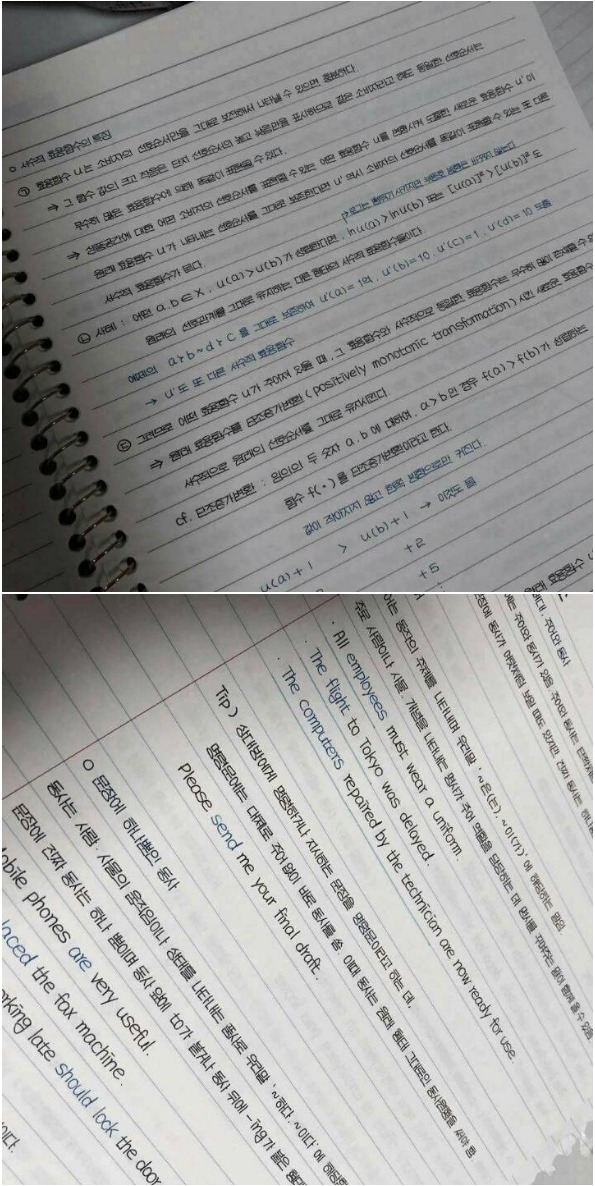 o 서수적 효용함수의 특징
㉠ 효용함수 u는 소비자의 선호순서만을 그대로 보전해서 나타낼 수 있으면 충분하다.
⇒ 그 함수 값의 크고 작음은 단지 선호순서의 높고 낮음만을 표시하므로 같은 소비자라고 해도 동일한 선호순서는
무수히 많은 효용함수에 의해 똑같이 표현될 수 있다.
⇒ 상품공간에 대한 어떤 소비자의 선호순서를 표현할 수 있는 어떤 효용함수 u를 변형시켜 도출한 새로운 효용함수 u'이
원래 효용함수 u가 나타내는 선호순서를 그대로 보존한다면 u' 역시 소비자의 선호순서를 똑같이 표현할 수 있는 또 다른
서수적 효용함수가 된다.
㉡ 사례 : 어떤 a, b ∈ X, u(a) > u(b)가 성립한다면, ln u(a) > ln u(b) 또는 [u(a)]³ > [u(b)]³ 도
원래의 선호관계를 그대로 유지하는 다른 형태의 서수적 효용함수들이다.
예제의 a≻b~d≻c 를 그대로 보존하여 u'(a) = 19, u'(b) = 10, u'(c) = 1, u'(d) = 10
→ u'도 또 다른 서수적 효용함수
㉢ 그러므로 어떤 효용함수 u가 주어져 있을 때, 그 효용함수와 서수적으로 동일한 효용함수는 무수히 많이 존재할 수
⇒ 원래 효용함수를 단조증가변환 (positively monotonic transformation) 시킨 새로운 효용함수
서수적으로 원래의 선호순서를 그대로 유지시킨다.
cf. 단조증가변환 : 임의의 두 숫자 a, b에 대하여, a>b인 경우 f(a) > f(b)가 성립하는
함수 f(·)를 단조증가변환이라고 한다.
값이 작아지지 않고 한쪽 방향으로만 커진다.
u(a)+1 > u(b)+1 → 이것도 됨
+2
+5
주로 사람이나 사물, 개념을 나타내는 명사가 주어 역할을 담당하는 데 명사를 꾸며주는 말이 함께 올 수 있음
· All employees must wear a uniform.
· The flight to Tokyo was delayed.
· The computers repaired by the technician are now ready for use.
Tip) 상대방에게 명령하거나 지시하는 문장을 명령문이라고 하는 데,
명령문에는 대체로 주어 없이 바로 동사를 씀. 이때 동사는 원래 형태 그대로의 동사원형을 써야 함
Please send me your final draft.
o 문장에 하나뿐인 동사
동사는 사람, 사물의 움직임이나 상태를 나타내는 품사로 우리말 '~하다, ~이다'에 해당
문장에 진짜 동사는 하나 뿐이며 동사 앞에 to가 붙거나 동사 뒤에 -ing가 붙은
Mobile phones are very useful.
laced the fax machine.
rking late should lock the door